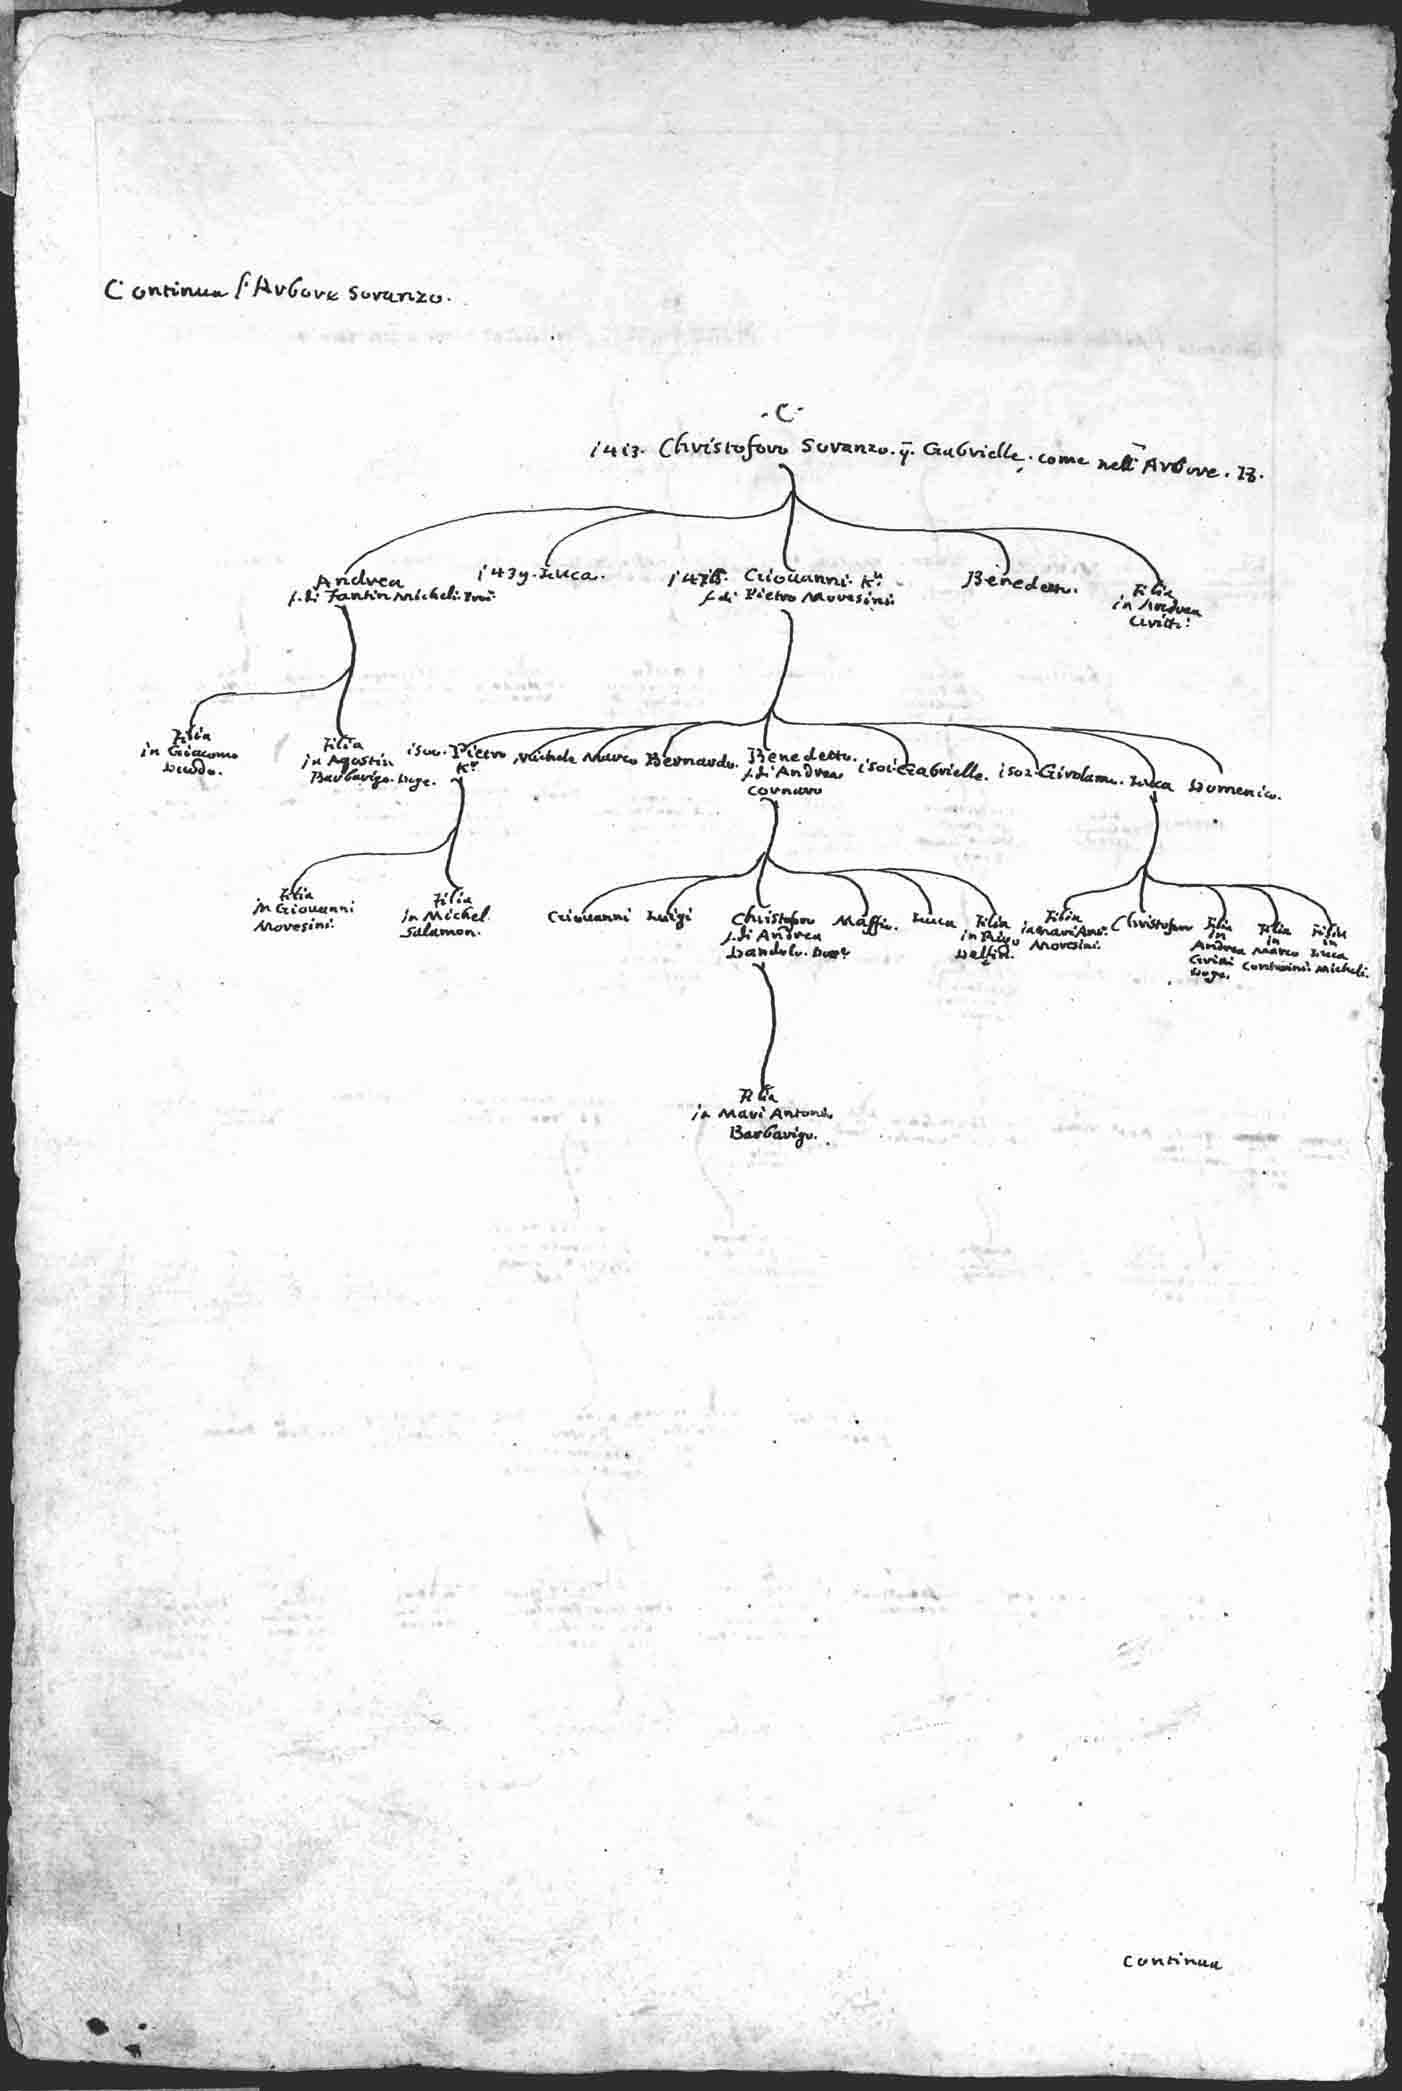 Continua l'Arbore Soranzo.
·C·
1413. Christoforo Soranzo. q. Gabrielle. come nell Arbore. B.
Andrea
f. di Fantin Micheli. Pro:
1439. Luca.
Giouanni. Kr
f. di Pietro Moresini.
Benedetto.
Filia
in Andrea
Gritti:
Filia
in Giacomo
Duodo.
Filia
in Agostin
Barbarigo. Doge.
1500. Pietro
Kr
Michele
Marco
Bernardo.
Benedetto.
f. di Andrea
Cornaro
1501. Gabrielle.
1502. Girolamo.
Luca
Domenico.
Filia
in Giouanni
Moresini.
Filia
in Michel
Salamon.
Giouanni
Luigi
Christoforo
f. di Andrea
Dandolo.
Maffio.
Luca
Filia
in Rigo
Delfin.
Filia
in Mari Ant.
Moresini.
Christoforo
Filia
in
Andrea
Gritti
Doge.
Filia
in
Marco
Contarini.
Filia
in
Luca
Micheli.
Filia
in Mari Antonio
Barbarigo.
continua